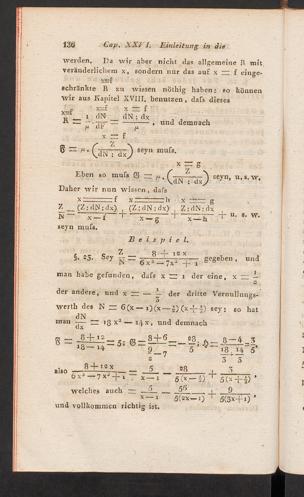 136 Cap. XXVI. Einleitung in die
werden. Da wir aber nicht das allgemeine R mit
veränderlichem x, sondern nur das auf x = f einge-
schränkte R zu wissen nöthig haben: so können
wir aus Kapitel XVIII, benutzen, daſs dieses
und demnach
x = f
seyn muſs.
x = g
Eben so muſs G = μ. (Z / dN : dx) seyn, u. s. w.
Daher wir nun wissen, daſs
x = f x = g x = h
Z/N = (Z:dN:dx)/(x−f) + (Z:dN:dx)/(x−g) + (Z:dN:dx)/(x−h) + u. s. w.
seyn muſs.
Beispiel.
§. 23. Sey Z/N = (8 + 12x)/(6x³ − 7x² + 1) gegeben, und
man habe gefunden, daſs x = 1 der eine, x = 1/2
der andere, und x = − 1/3 der dritte Vernullungs-
werth des N = 6(x−1)(x−½)(x+⅓) sey: so hat
man dN/dx = 18x² − 14x, und demnach
also (8 + 12x)/(6x³ − 7x² + 1) = 5/(x−1) − 28/(5(x−½)) + 3/(5(x+⅓)),
welches auch = 5/(x−1) − 56/(5(2x−1)) + 9/(5(3x+1)),
und vollkommen richtig ist.